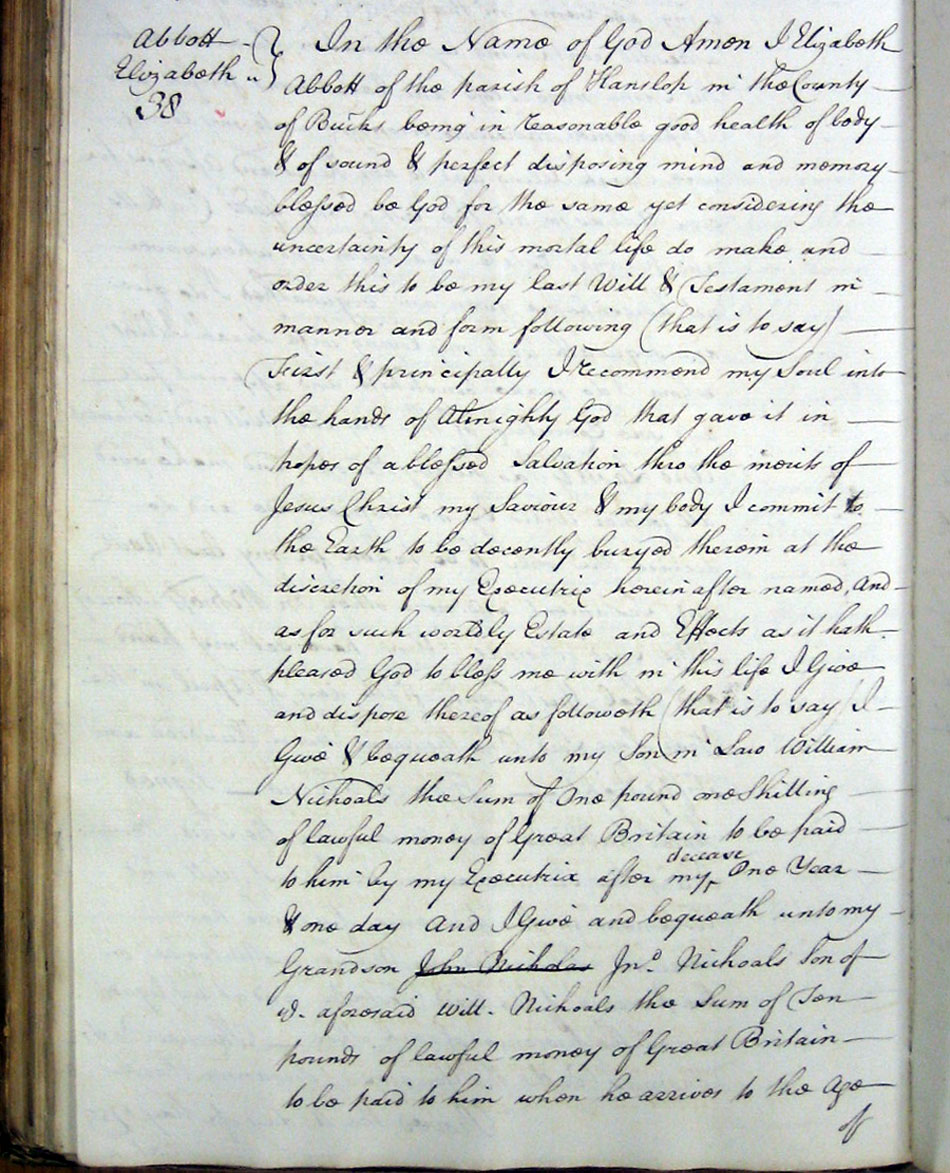 Abbott
Elizabeth
38
In the Name of God Amen I Elizabeth
Abbott of the parish of Hanslop in the County
of Bucks being in reasonable good health of body
& of sound & perfect disposing mind and memory
blessed be God for the same yet considering the
uncertainty of this mortal life do make and
order this to be my last Will & Testament in
manner and form following (that is to say)
First & principally I recommend my Soul into
the hands of Almighty God that gave it in
hopes of a blessed Salvation thro the merits of
Jesus Christ my Saviour & my body I commit to
the Earth to be decently buryed therein at the
discretion of my Executrix herein after named, And
as for such worldly Estate and Effects as it hath
pleased God to bless me with in this life I Give
and dispose thereof as followeth (that is to say) I
Give & bequeath unto my Son in Law William
Nichoals the Sum of One pound one Shilling
of lawful money of Great Britain to be paid
to him by my Executrix after my decease One Year
& one day And I Give and bequeath unto my
Grandson John Nicholas Jno. Nichoals Son of
aforesaid Will. Nichoals the Sum of Ten
pounds of lawful money of Great Britain
to be paid to him when he arrives to the Age
of